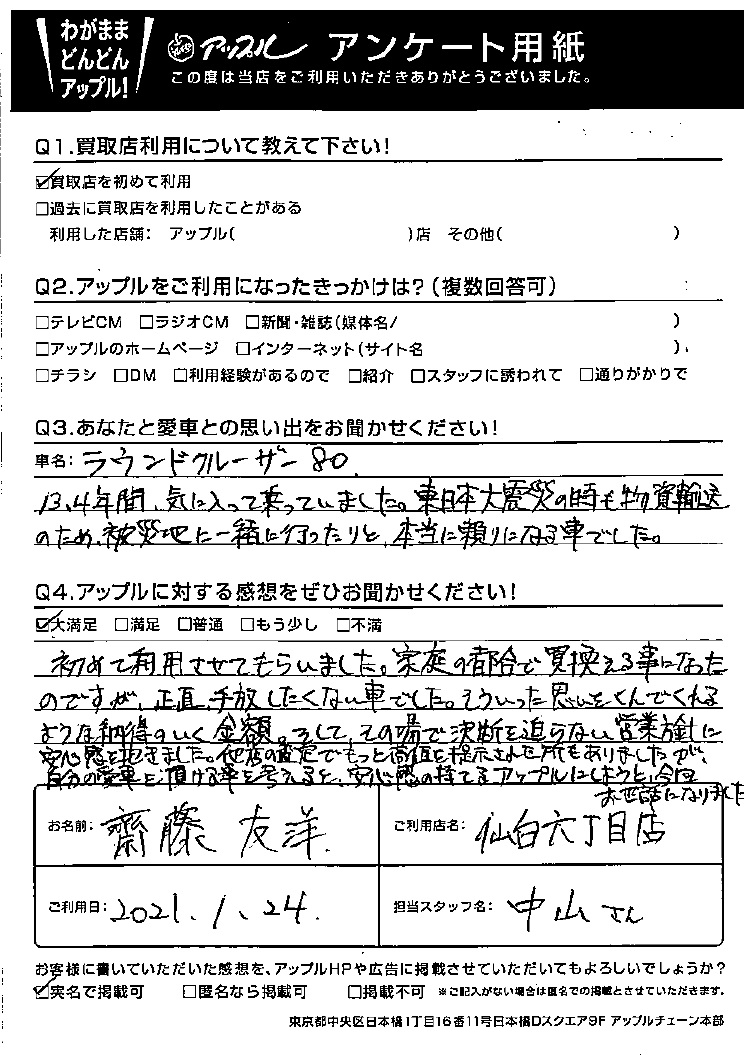 わがまま
どんどん
アップル!
アップル アンケート用紙
この度は当店をご利用いただきありがとうございました。
Q1.買取店利用について教えて下さい!
☑買取店を初めて利用
□過去に買取店を利用したことがある
利用した店舗: アップル( )店 その他( )
Q2.アップルをご利用になったきっかけは?(複数回答可)
□テレビCM □ラジオCM □新聞・雑誌(媒体名/ )
□アップルのホームページ □インターネット(サイト名 )
□チラシ □DM □利用経験があるので □紹介 □スタッフに誘われて □通りがかりで
Q3.あなたと愛車との思い出をお聞かせください!
車名: ラウンドクルーザー80.
13,4年間、気に入って乗っていました。東日本大震災の時も物資輸送
のため、被災地に一緒に行ったりと、本当に頼りになる車でした。
Q4.アップルに対する感想をぜひお聞かせください!
☑大満足 □満足 □普通 □もう少し □不満
初めて利用させてもらいました。家庭の都合で買換える事になった
のですが、正直、手放したくない車でした。そういった思いをくんでくれる
ような納得のいく金額。そして、その場で決断を迫らない営業方針に
安心感を抱きました。他店の査定でもっと高値を提示された所もありましたが、
自分の愛車を預ける事を考えると、安心感の持てるアップルにしようと、今回
お世話になりました
お名前: 齋藤 友洋.
ご利用店名: 仙台六丁目店
ご利用日: 2021.1.24.
担当スタッフ名: 中山さん
お客様に書いていただいた感想を、アップルHPや広告に掲載させていただいてもよろしいでしょうか?
☑実名で掲載可 □匿名なら掲載可 □掲載不可 ※ご記入がない場合は匿名での掲載とさせていただきます。
東京都中央区日本橋1丁目16番11号日本橋Dスクエア9F アップルチェーン本部